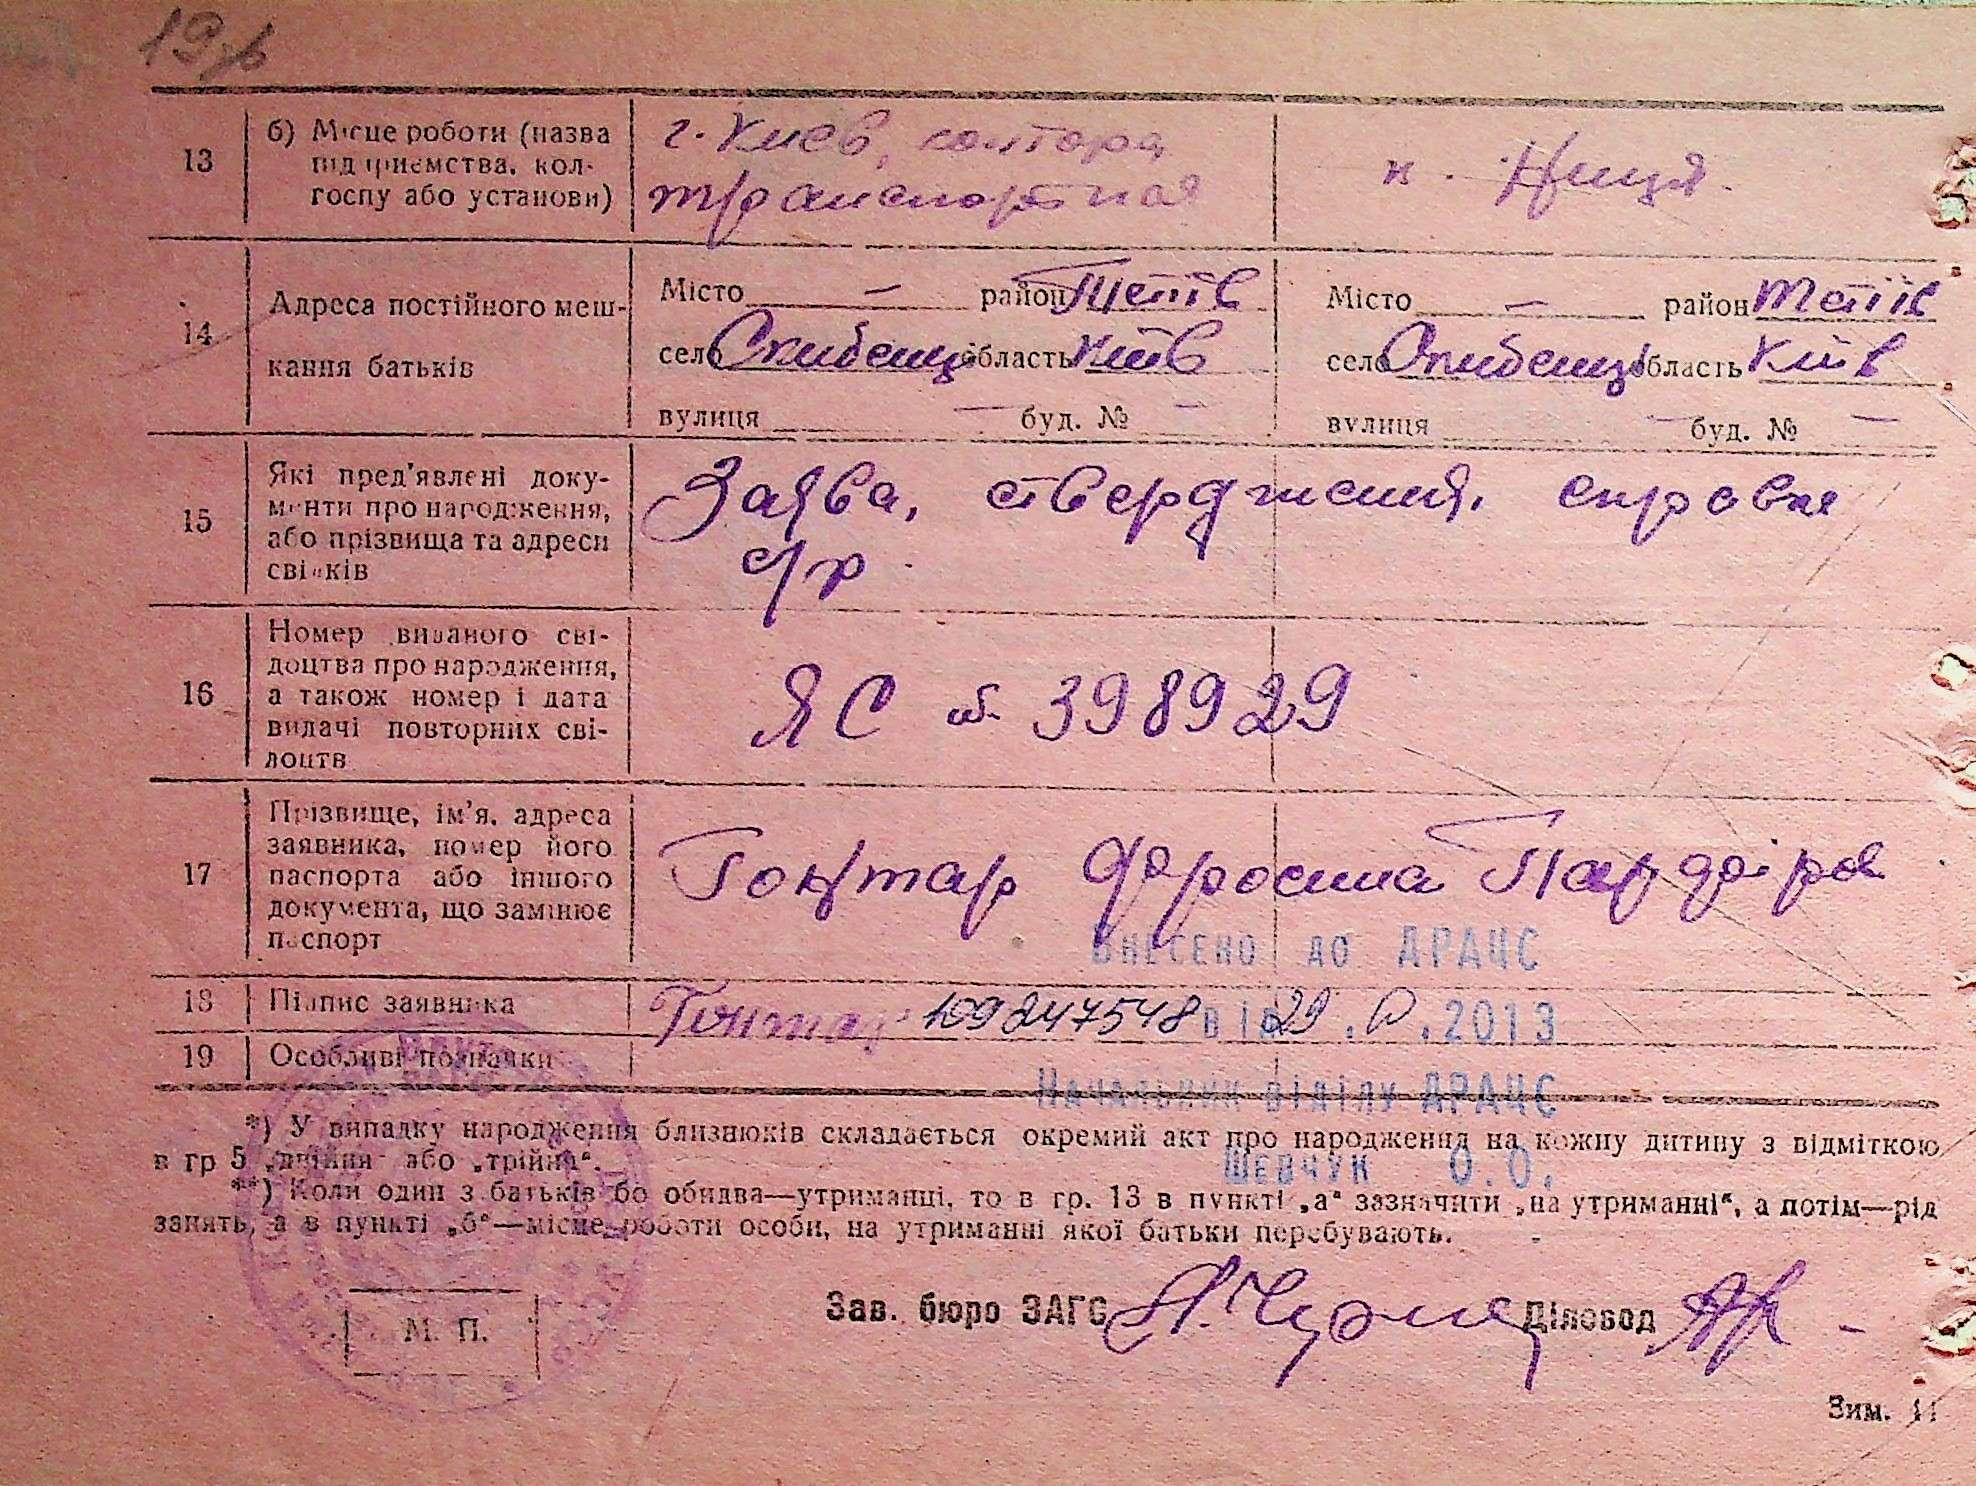 19
13
б) Місце роботи (назва
підприємства, кол-
госпу або установи)
г. Киев, контора
транспортная
14
Адреса постійного меш-
кання батьків
Місто — район Тетіїв
село Скибенці область Київ
вулиця — буд. № —
Місто — район Тетіїв
село Скибенці область Київ
вулиця — буд. № —
15
Які пред'явлені доку-
менти про народження,
або прізвища та адреси
свідків
Заява, ствердження, справка
с/р
16
Номер виданого сві-
доцтва про народження,
а також номер і дата
видачі повторних сві-
доцтв
ЯС № 398929
17
Прізвище, ім'я, адреса
заявника, номер його
паспорта або іншого
документа, що замінює
паспорт
Гонтар Фросина
18
Підпис заявника
Гонтар
19
Особливі позначки
ВНЕСЕНО ДО ДРАЦС
109247548 від 29. .2013
НАЧАЛЬНИК ВІДІЛУ ДРАЦС
ШЕВЧУК О.О.
*) У випадку народження близнюків складається окремий акт про народження на кожну дитину з відміткою
в гр 5 „двійня“ або „трійня“.
**) Коли один з батьків бо обидва—утриманці, то в гр. 13 в пункті „а“ зазначити „на утриманні“, а потім—рід
занять, а в пункті „б“—місце роботи особи, на утриманні якої батьки перебувають.
М. П.
Зав. бюро ЗАГС
Діловод
Зим. 11